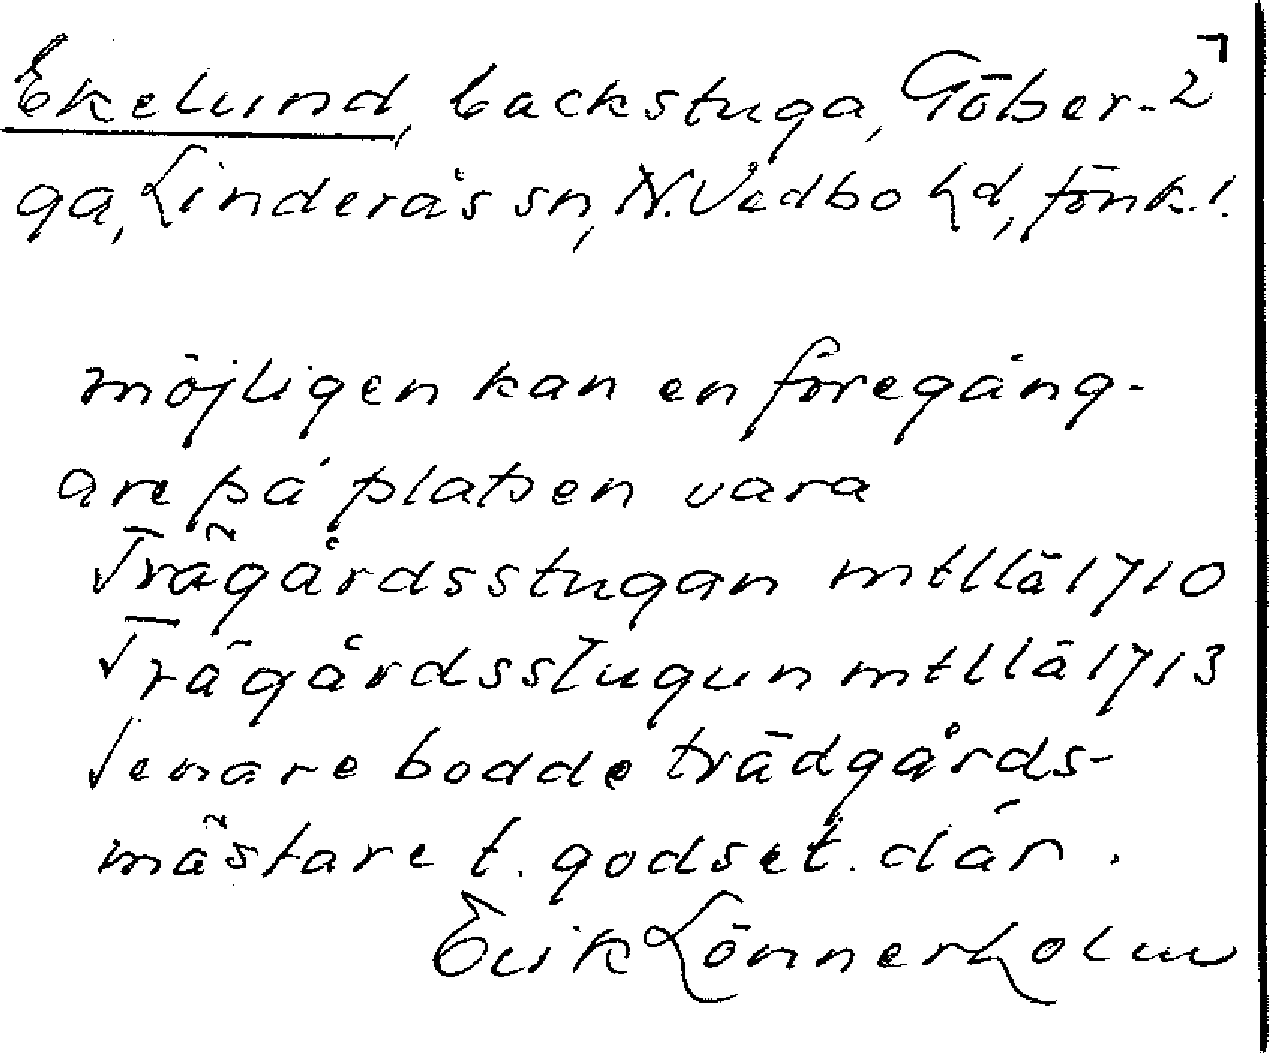 Ekelund, backstuga, Göber- 2
ga, Linderås sn, N. Vedbo hd, Jönk. l.
möjligen kan en föregång-
are på platsen vara
Trägårdsstugan mtllä 1710
Trägårdsstugun mtllä 1713
Senare bodde trädgårds-
mästare t. godset. där.
Erik Lönnerholm